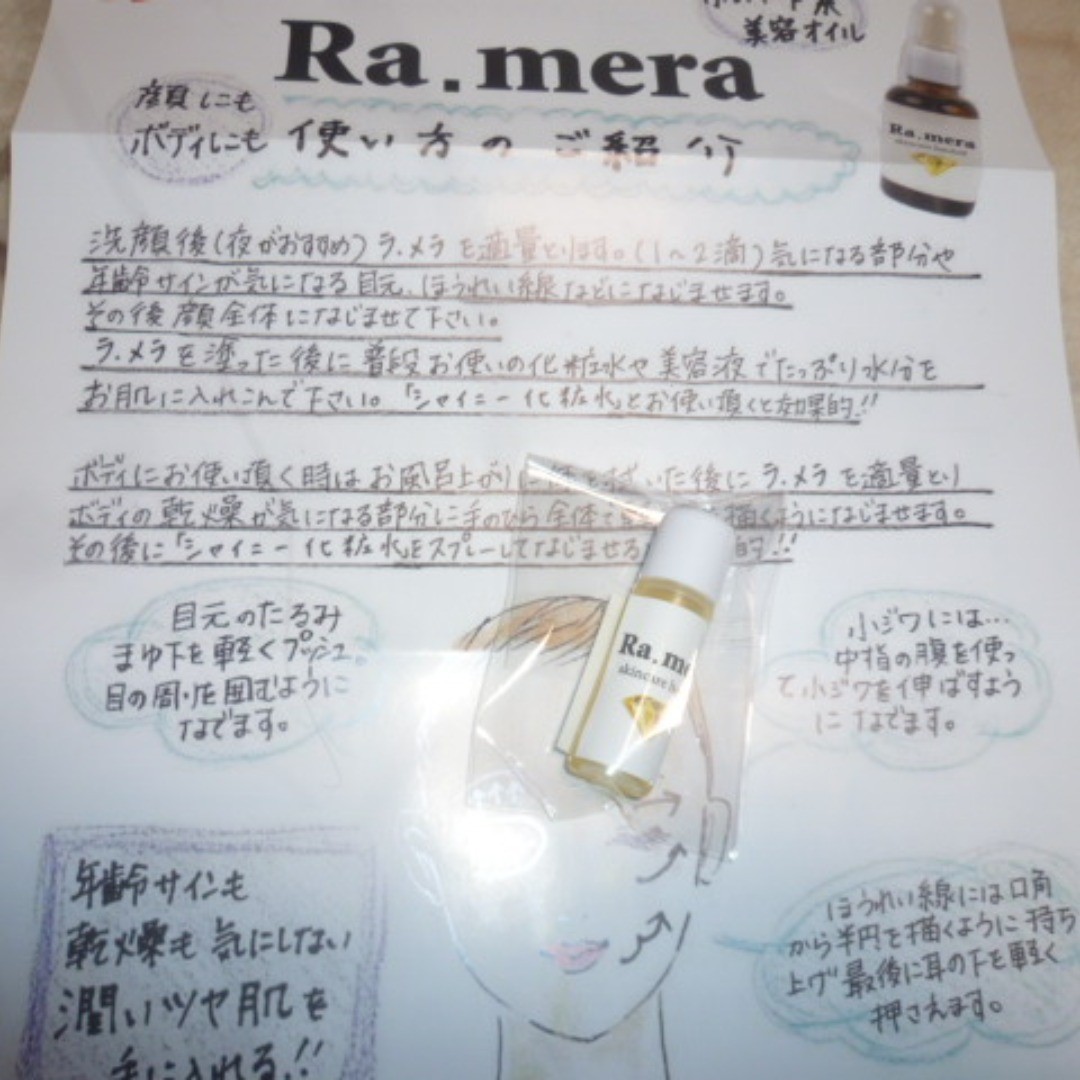 美容オイル
Ra.mera
顔にも
ボディにも
使い方のご紹介
Ra.mera
洗顔後(夜がおすすめ)ラ.メラを適量とります。(1~2滴)気になる部分や
年齢サインが気になる目元、ほうれい線などになじませます。
その後顔全体になじませて下さい。
ラ.メラを塗った後に普段お使いの化粧水や美容液でたっぷり水分を
お肌に入れこんで下さい。「シャイニー化粧水」とお使い頂くと効果的!!
ボディにお使い頂く時はお風呂上がりに
いた後にラ.メラを適量とり
ボディの乾燥が気になる部分に手のひら全体で
描くようになじませます。
その後に「シャイニー化粧水」をスプレーしてなじませる
的!!
目元のたるみ
まゆ下を軽くプッシュ。
目の周りを囲むように
なでます。
Ra.me
skincare
小ジワには…
中指の腹を使っ
て小ジワを伸ばすよう
になでます。
年齢サインも
乾燥も気にしない
潤いツヤ肌を
手に入れる!!
ほうれい線には口角
から半円を描くように持ち
上げ最後に耳の下を軽く
押さえます。